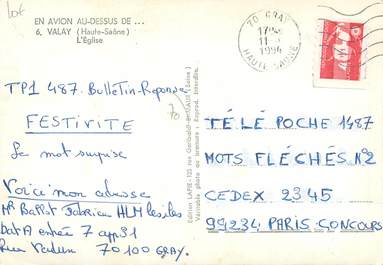 EN AVION AU-DESSUS DE ...
6. VALAY (Haute-Saône)
L'Église
70 GRAY
11-
1994
HAUTE-SAONE
TP1 487. Bulletin-Reponse
FESTIVITE
Le mot surprise
Voici mon adresse
Mr Fabrice HLM les iles
bat A entrée 7 app 31
Rue 70100 GRAY.
70
Edition LAPIE - 123 rue Garibaldi - (Seine)
Véritable photo au bromure - Reprod. interdite.
TÉLÉ POCHE 1487
MOTS FLÉCHÉS N°2
CEDEX 2345
99234 PARIS CONCOURS